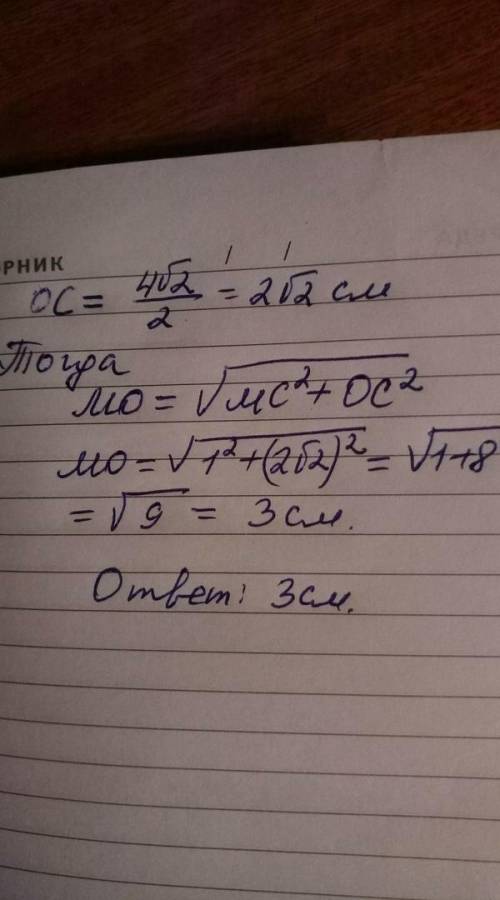 ОРНИК
OC = 4√2/2 = 2√2 см
Тогда
MO = √MC² + OC²
MO = √1² + (2√2)² = √1+8
= √9 = 3 см.
Ответ: 3 см.